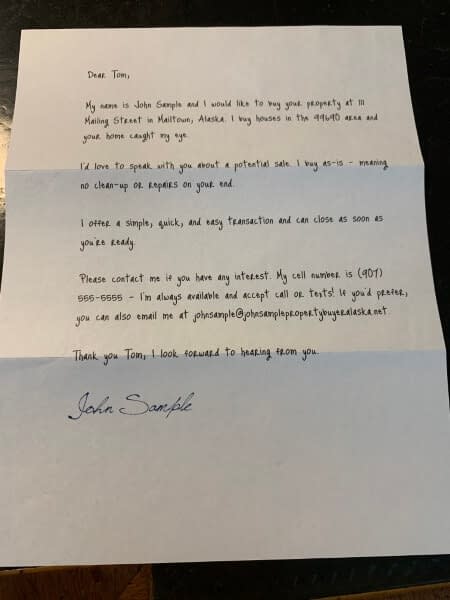 Dear Tom,
My name is John Sample and I would like to buy your property at 111
Mailing Street in Mailtown, Alaska. I buy houses in the 99690 area and
your home caught my eye.
I'd love to speak with you about a potential sale. I buy as-is - meaning
no clean-up or repairs on your end.
I offer a simple, quick, and easy transaction and can close as soon as
you're ready.
Please contact me if you have any interest. My cell number is (907)
555-5555 - I'm always available and accept call or texts! If you'd prefer,
you can also email me at johnsample@johnsamplepropertybuyeralaska.net.
Thank you Tom, I look forward to hearing from you.
John Sample